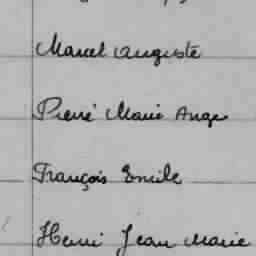 Marcel Auguste
Pierre Marie Ange
François Emile
Henri Jean Marie